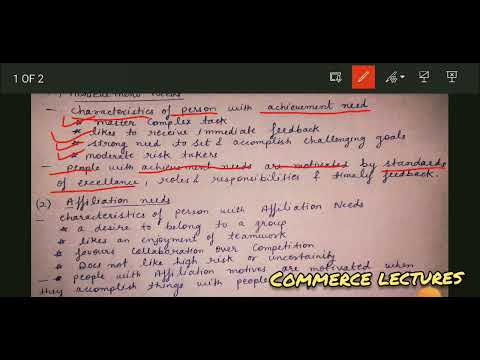 1 OF 2
Achievement Needs
- characteristics of person with achievement need
* master Complex task
* likes to receive immediate feedback
* strong need to set & accomplish challenging goals
* moderate risk takers
- people with achievement needs are motivated by standards
of excellence, roles & responsibilities & timely feedback.
(2) Affiliation needs
- characteristics of person with Affiliation Needs
* a desire to belong to a group
* likes an enjoyment of teamwork
* favours collaboration over Competition
* Does not like high risk or uncertainity
* people with Affiliation motives are motivated when
they accomplish things with people
COMMERCE LECTURES